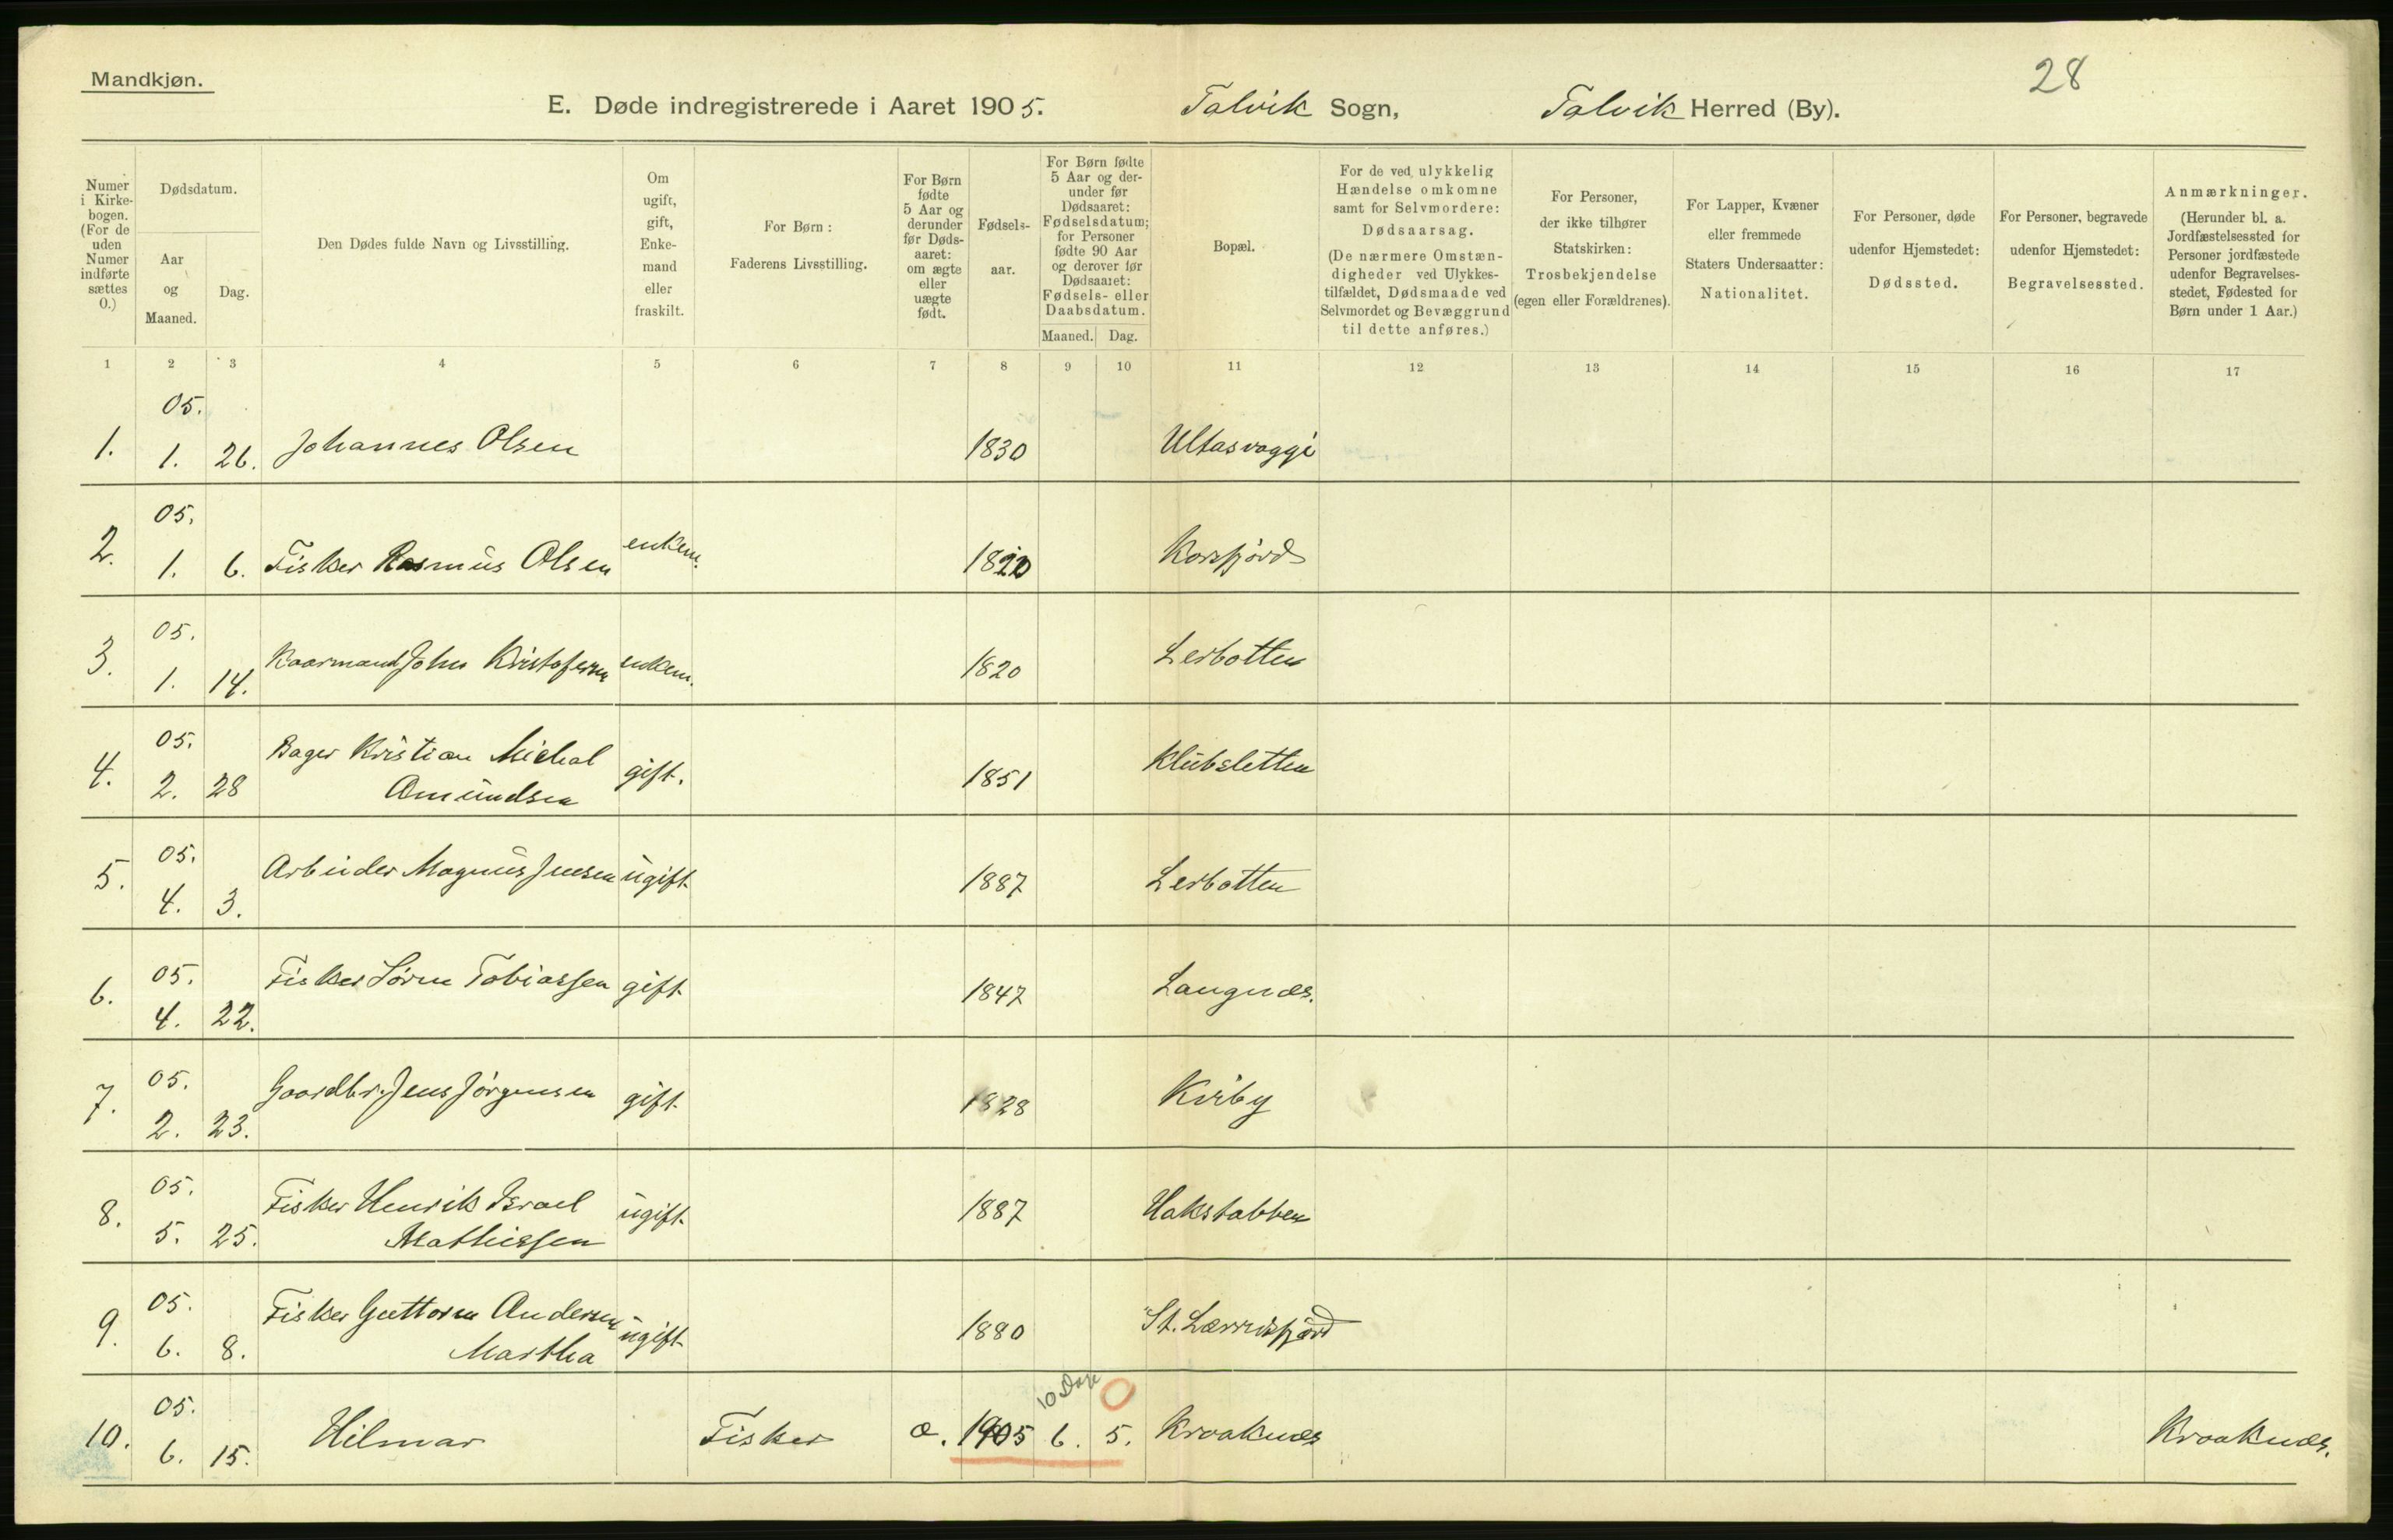 Mandkjøn.
28
E. Døde indregistrerede i Aaret 1905. Talvik Sogn, Talvik Herred (By).
Numer i Kirke-bogen. (For de uden Numer indførte sættes 0.)
Dødsdatum.
Aar og Maaned.
Dag.
Den Dødes fulde Navn og Livsstilling.
Om ugift, gift, Enke-mand eller fraskilt.
For Børn: Faderens Livsstilling.
For Børn fødte 5 Aar og derunder før Døds-aaret: om ægte eller uægte født.
Fødsels-aar.
For Børn fødte 5 Aar og der-under før Dødsaaret: Fødselsdatum; for Personer fødte 90 Aar og derover før Dødsaaret: Fødsels- eller Daabsdatum.
Maaned. Dag.
Bopæl.
For de ved ulykkelig Hændelse omkomne samt for Selvmordere: Dødsaarsag. (De nærmere Omstæn-digheder ved Ulykkes-tilfældet, Dødsmaade ved Selvmordet og Bevæggrund til dette anføres.)
For Personer, der ikke tilhører Statskirken: Trosbekjendelse (egen eller Forældrenes).
For Lapper, Kvæner eller fremmede Staters Undersaatter: Nationalitet.
For Personer, døde udenfor Hjemstedet: Dødssted.
For Personer, begravede udenfor Hjemstedet: Begravelsessted.
Anmærkninger. (Herunder bl. a. Jordfæstelsessted for Personer jordfæstede udenfor Begravelses-stedet, Fødested for Børn under 1 Aar.)
1 2 3 4 5 6 7 8 9 10 11 12 13 14 15 16 17
05.
1. 1. 26. Johannes Olsen 1830 Ultasvaggi
05.
2. 1. 6. Fisker Rasmus Olsen enkem. 1820 Korsfjord
05.
3. 1. 14. Kaarmand John Kristofersen enkem. 1820 Lerbotten
05.
4. 2. 28 Bager Kristian Michal gift. 1851 Klubsletten
Amundsen
05.
5. 4. 3. Arbeider Magnus Jensen ugift 1887 Lerbotten
05.
6. 4. 22. Fisker Søren Tobiassen gift 1847 Langnæs.
05.
7. 2. 23. Gaardbr. Jens Jørgensen gift 1828 Kirby
05.
8. 5. 25. Fisker Henrik Israel ugift 1887 Hakstabben
Mathissen
05.
9. 6. 8. Fisker Guttorm Andersen ugift 1880 St. Lerresfjord
Martha
10 Dage 0
05.
10. 6. 15. Hilmar Fisker æ. 1905 6. 5. Kraaknæs Kraaknæs.